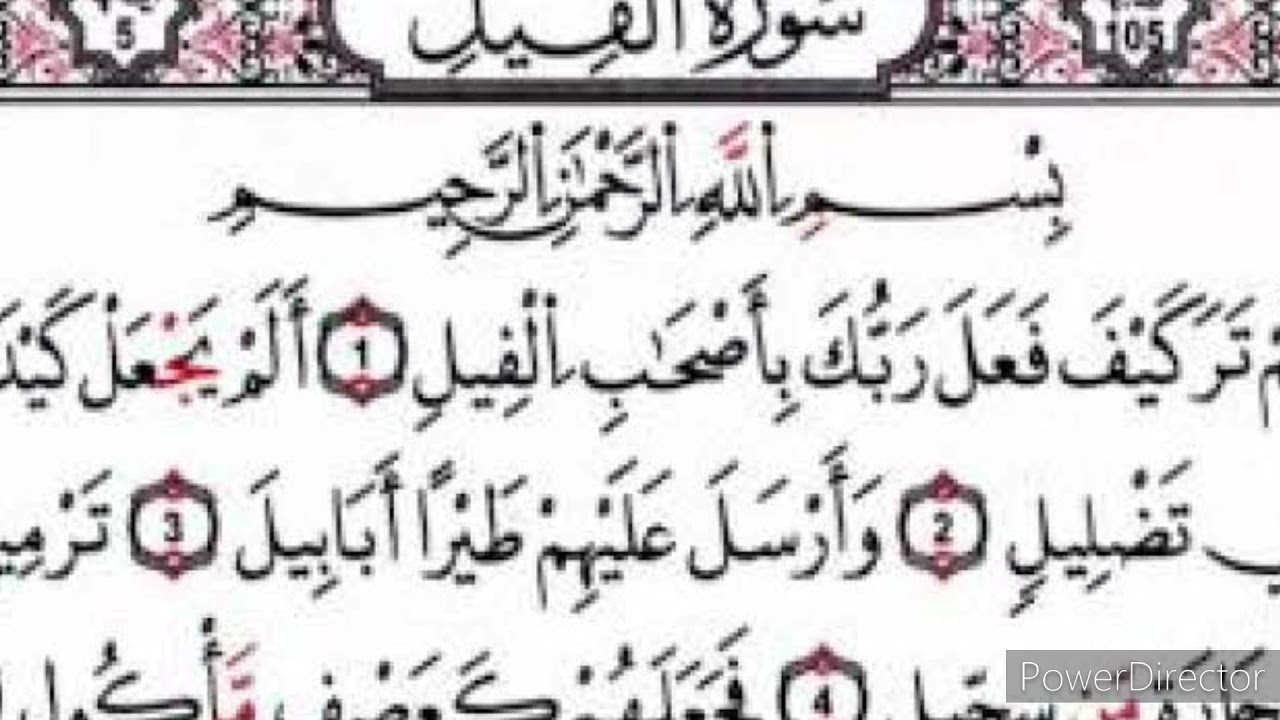 5 سورة الفيل 105
بِسْمِ اللَّهِ الرَّحْمَٰنِ الرَّحِيمِ
تَرَ كَيْفَ فَعَلَ رَبُّكَ بِأَصْحَٰبِ الْفِيلِ 1 أَلَمْ يَجْعَلْ كَيْدَ
تَضْلِيلٍ 2 وَأَرْسَلَ عَلَيْهِمْ طَيْرًا أَبَابِيلَ 3 تَرْمِي
سِجِّيلٍ 4 فَجَعَلَهُمْ كَعَصْفٍ مَّأْكُولٍ
PowerDirector